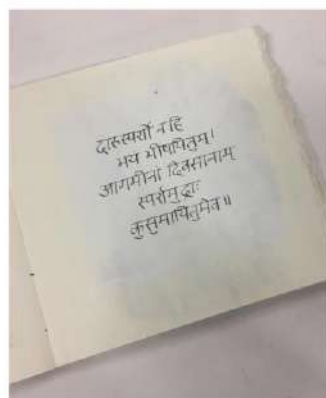 दारुस्पर्शो नहि
भय भीषयितुम्।
आगमीनां दिवसानाम्
स्पर्शमुद्राः
कुसुमायितुमेव॥